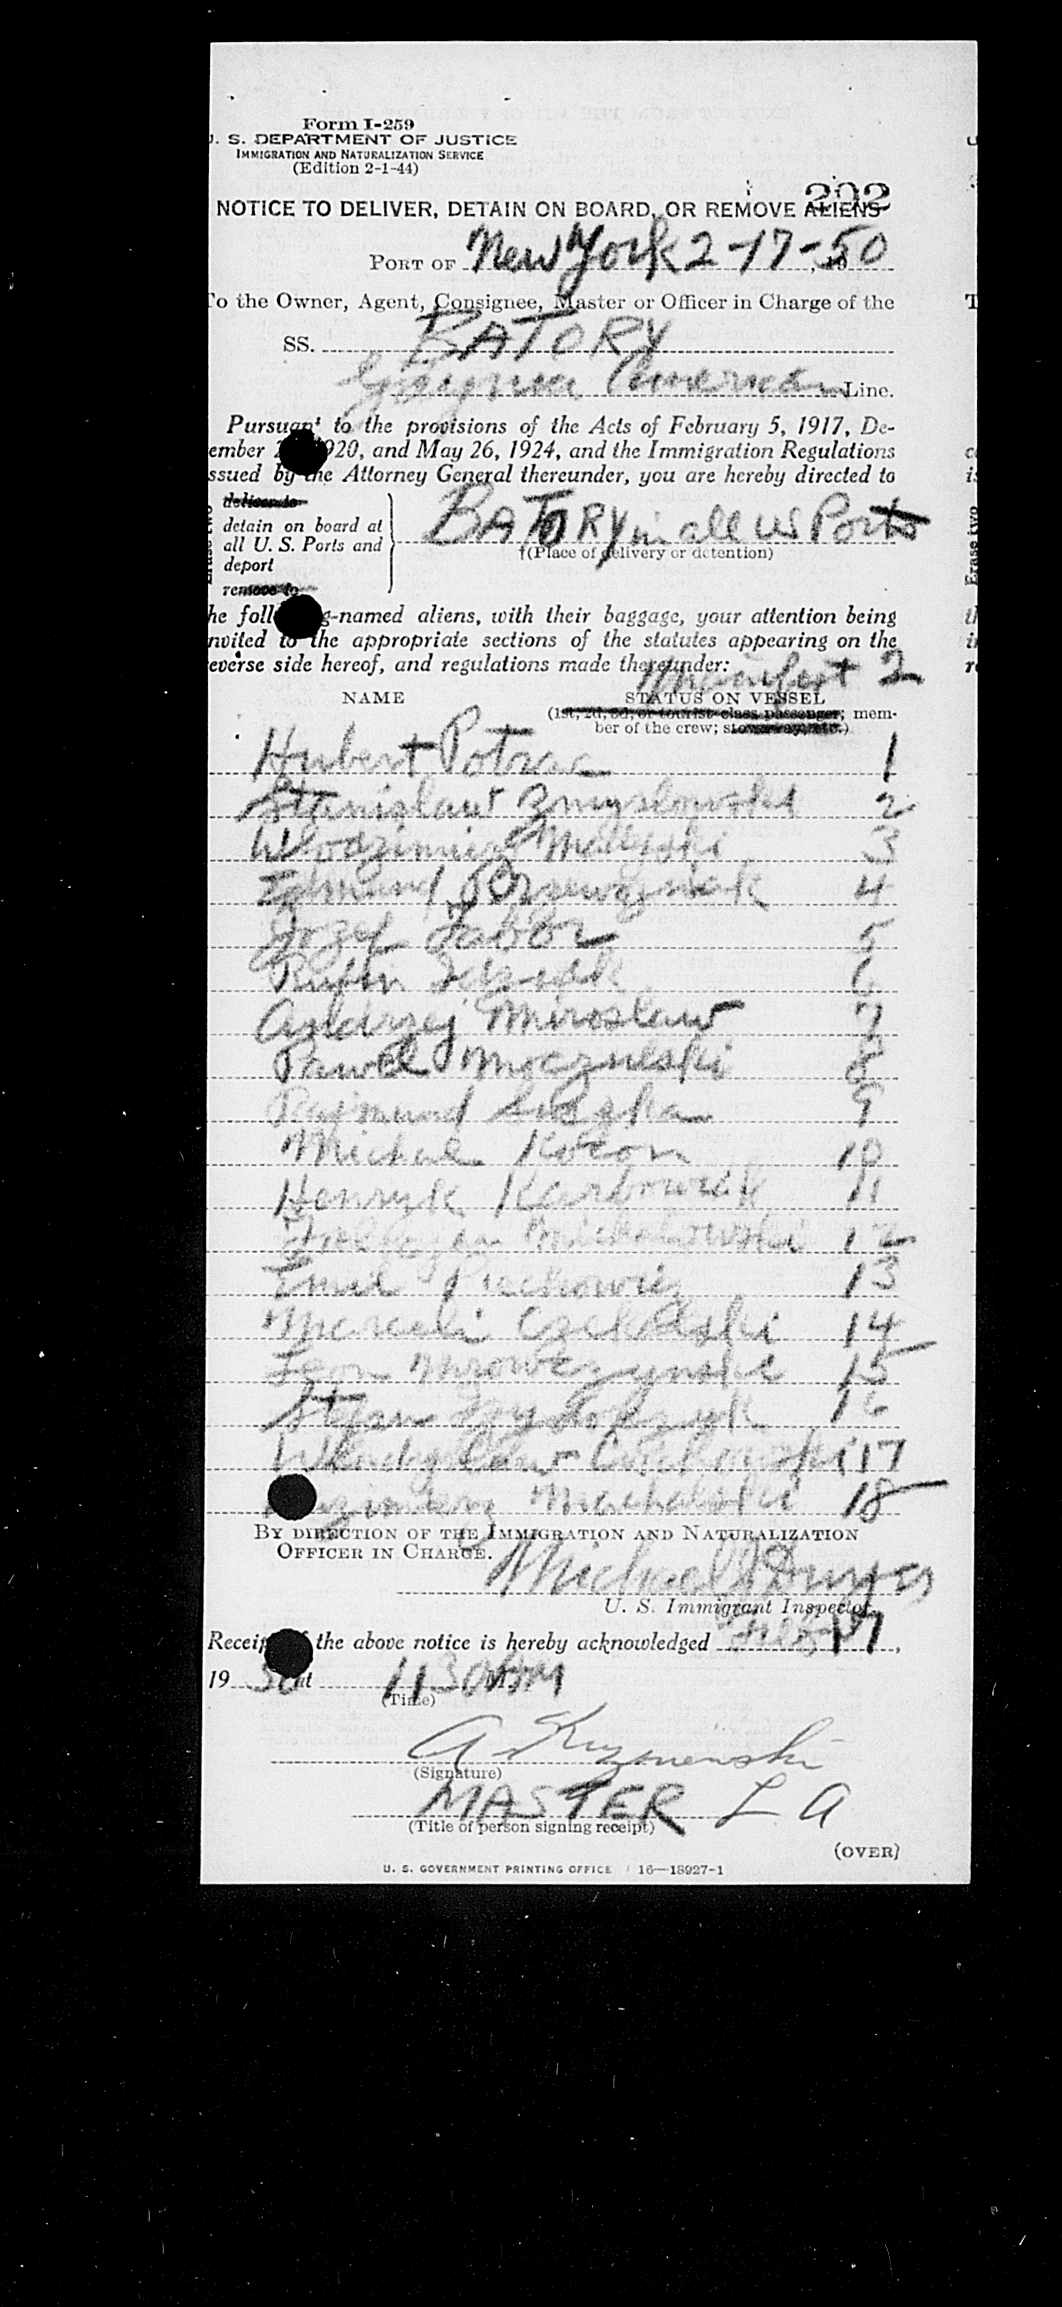 Form I-259
U. S. DEPARTMENT OF JUSTICE
IMMIGRATION AND NATURALIZATION SERVICE
(Edition 2-1-44)
202
NOTICE TO DELIVER, DETAIN ON BOARD, OR REMOVE ALIENS
PORT OF New York 2-17-50
To the Owner, Agent, Consignee, Master or Officer in Charge of the
SS. BATORY
Gdynia American Line.
Pursuant to the provisions of the Acts of February 5, 1917, De-
ember 1920, and May 26, 1924, and the Immigration Regulations
ssued by the Attorney General thereunder, you are hereby directed to
deliver to
detain on board at
all U. S. Ports and
deport
remove to
BATORY in all US Ports
†(Place of delivery or detention)
he following-named aliens, with their baggage, your attention being
nvited to the appropriate sections of the statutes appearing on the
everse side hereof, and regulations made thereunder:
Manifest 2
NAME STATUS ON VESSEL
(1st, 2d, 3d, or tourist class passenger; mem-
ber of the crew; stowaway, etc.)
Hubert Potrac 1
Stanislaw Zmyslowski 2
Wlodzimierz 3
Edmund 4
Jozef Tabor 5
Rufin 6
Andrzej Miroslaw 7
Pawel Moczulski 8
Rajmund 9
Michal Kocon 10
Henryk Karbowiak 11
Michalowski 12
Emil Piechowicz 13
Marceli 14
Leon Mrowczynski 15
Stefan 16
Wladyslaw 17
18
BY DIRECTION OF THE IMMIGRATION AND NATURALIZATION
OFFICER IN CHARGE.
Michael J Dwyer
U. S. Immigrant Inspector.
Receipt of the above notice is hereby acknowledged Feb 17,
19 50 at 1130 AM M.
(Time)
A
(Signature)
MASTER L A
(Title of person signing receipt)
(OVER)
U. S. GOVERNMENT PRINTING OFFICE 16—18927-1